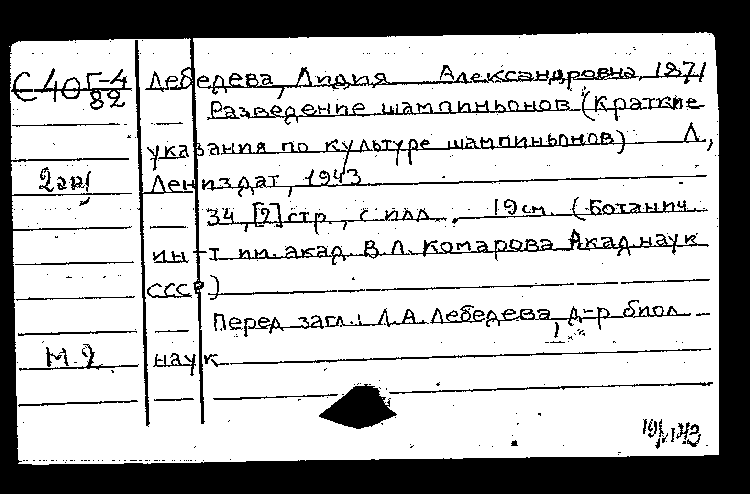 С40 Г-4/82 Лебедева, Лидия Александровна, 1871
Разведение шампиньонов (Краткие
указания по культуре шампиньонов) Л.,
2 экз Лениздат, 1943
34, [2] стр., с илл., 19 см. (Ботанич.
ин-т им. акад. В.Л. Комарова Акад наук
СССР)
Перед загл.: Л.А. Лебедева, д-р биол
М.2 наук